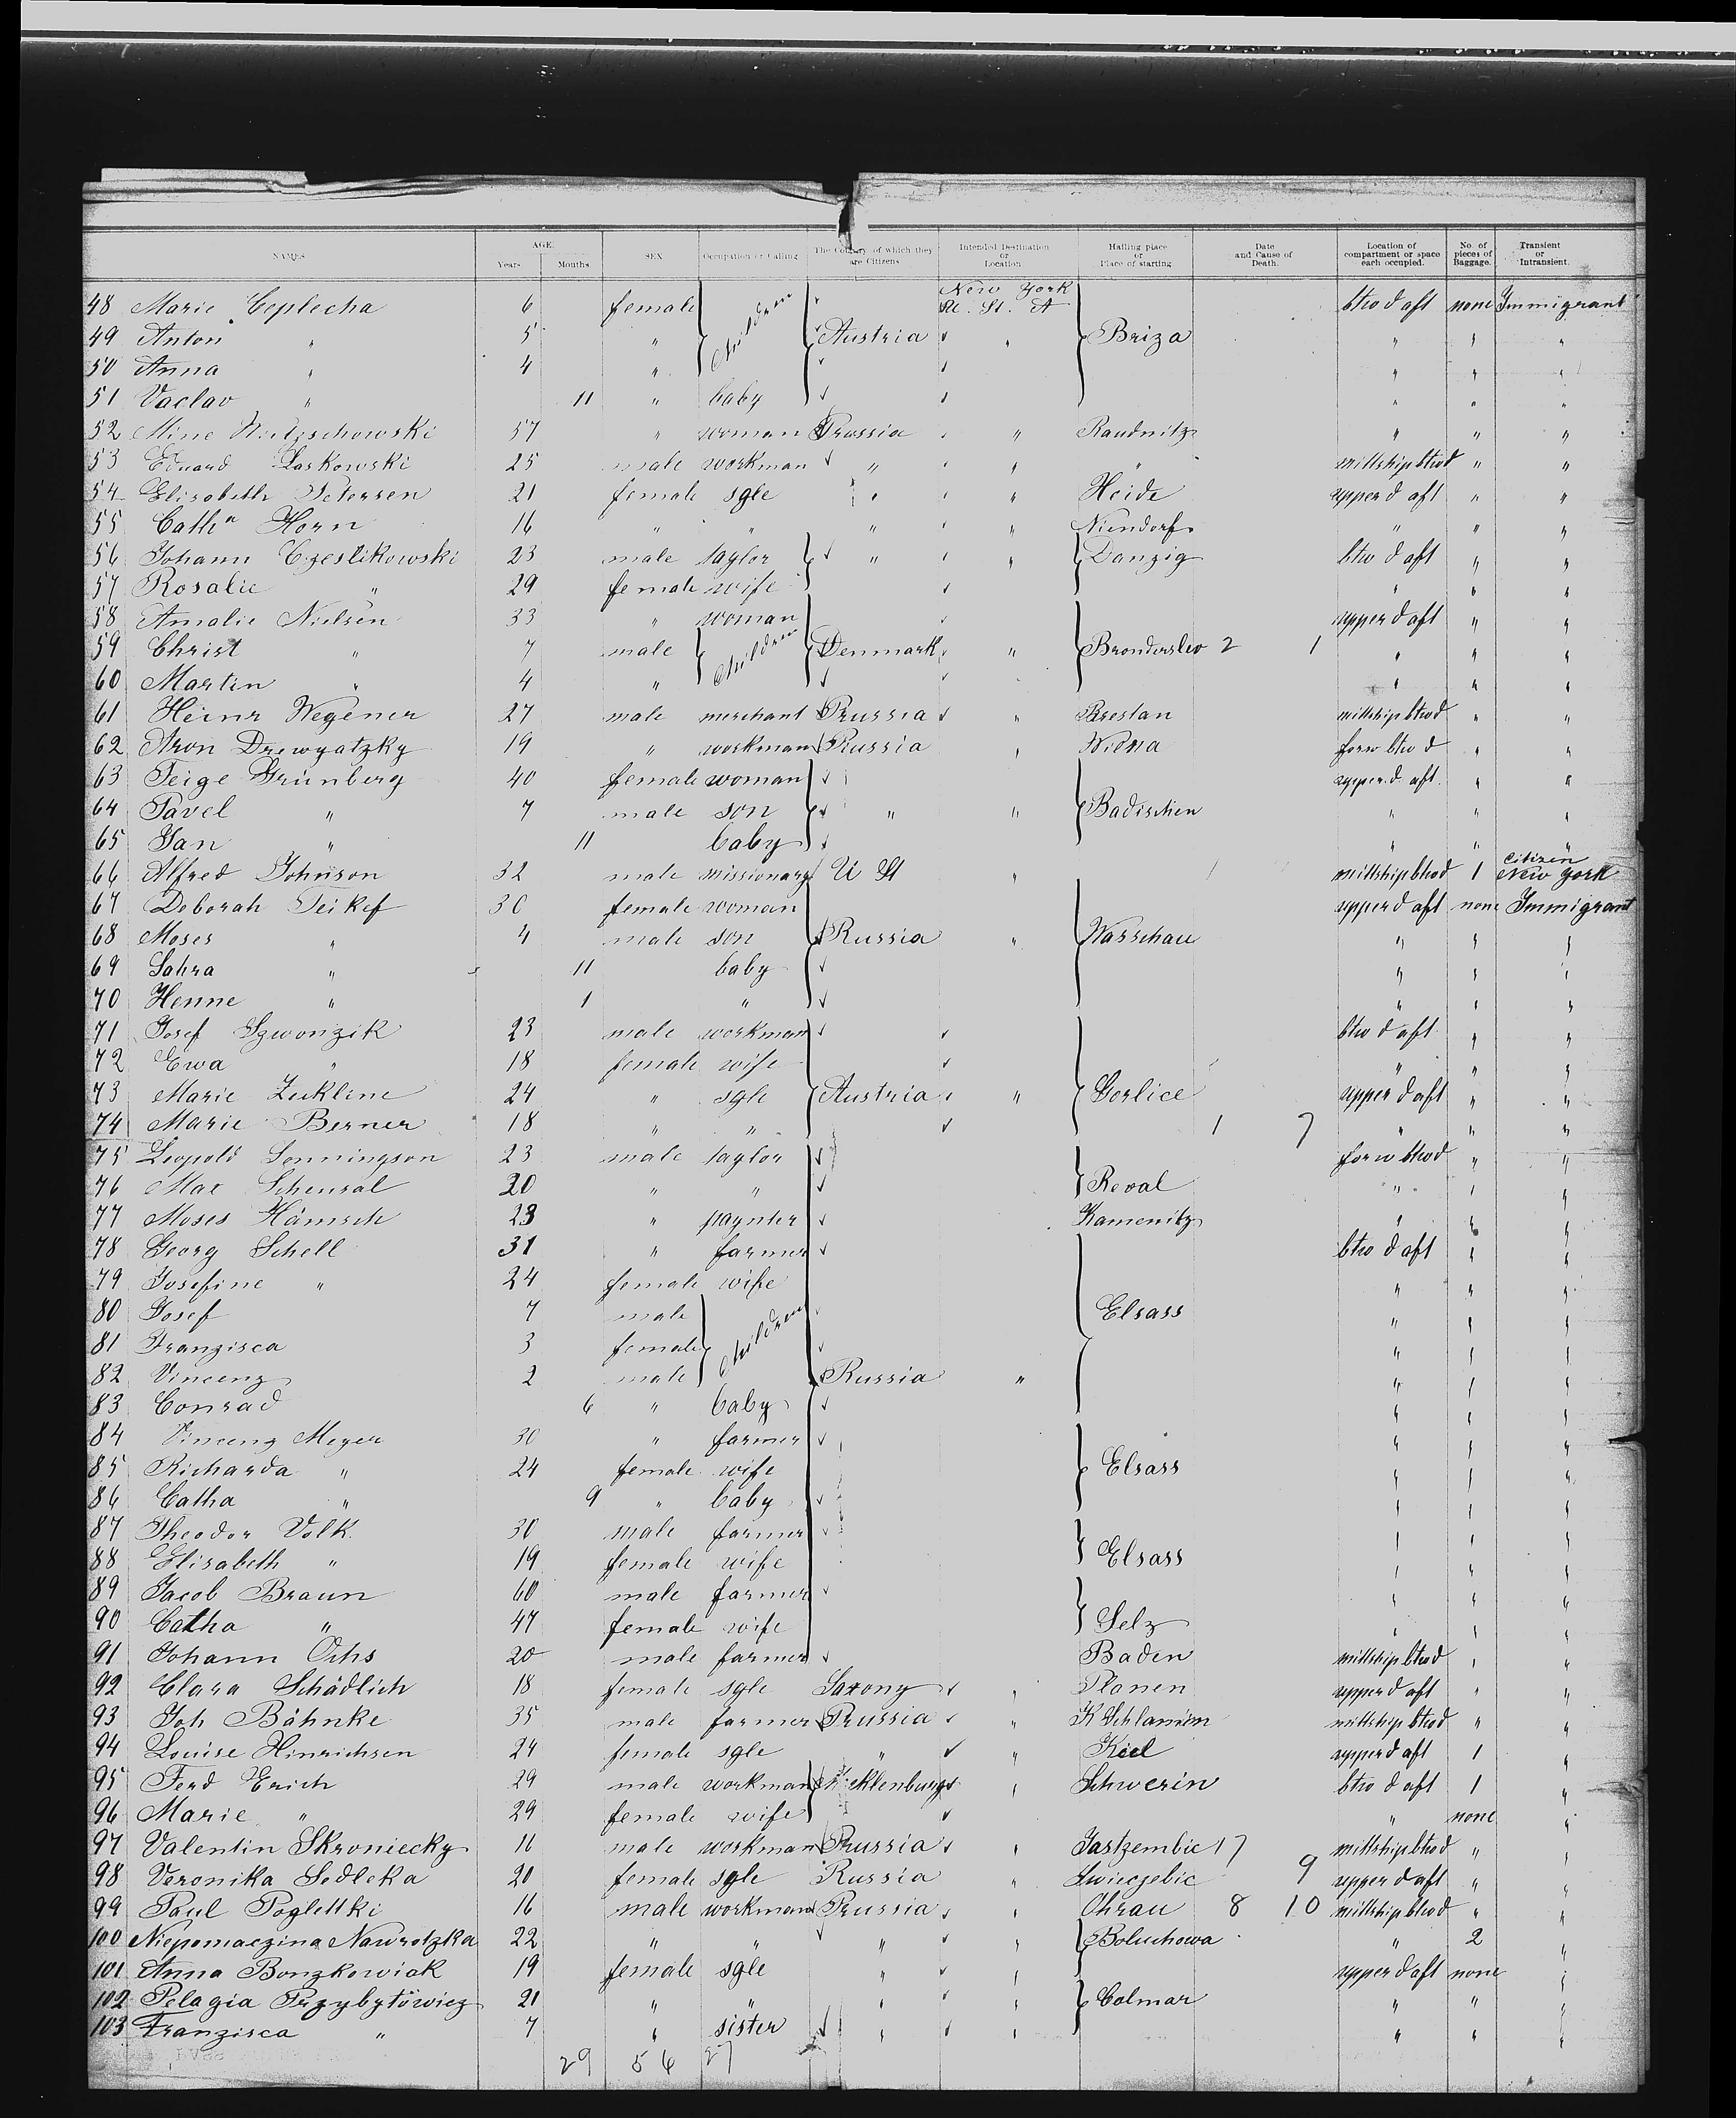 NAMES AGE. Years Months SEX Occupation or Calling The Country of which they are Citizens Intended Destination or Location Hailing place or Place of starting Date and Cause of Death. Location of compartment or space each occupied. No. of pieces of Baggage. Transient or Intransient.
48 Marie Ceplecha 6 female Children New York U. St. A btw d aft none Immigrant
49 Anton " 5 " Austria " Briza " " "
50 Anna " 4 " " " "
51 Vaclav " 11 " baby " " "
52 Mine 57 " woman Prussia " Raudnitz " " "
53 Eduard Laskowski 25 male workman " " " mittship btwd " "
54 Elisabeth Petersen 21 female sgle " " Heide upper d aft " "
55 Cathn Horn 16 " " " " Niendorf " " "
56 Johann Czeslikowski 23 male taylor " " Danzig btw d aft " "
57 Rosalie " 29 female wife " " "
58 Amalie Nielsen 33 " woman upper d aft " "
59 Christ " 7 male Children Denmark " Bronderslev 2 1 " " "
60 Martin " 4 " " " "
61 Heinr Wegener 27 male merchant Prussia " Breslan mittship btwd " "
62 Aron Drewyatzky 19 " workman Russia " Wilna forw btw d " "
63 Feige Grünberg 40 female woman upper d aft " "
64 Pavel " 7 male son " " Badischen " " "
65 Jan " 11 baby " " "
66 Alfred Johnson 32 male missionary U St " mittship btwd 1 citizen New York
67 Deborah Teikef 30 female woman upper d aft none Immigrant
68 Moses " 4 male son Russia " Warschau " " "
69 Sahra " 11 baby " " "
70 Henne " 1 " " " "
71 Josef Szwonzik 23 male workman btw d aft " "
72 Ewa " 18 female wife " " "
73 Marie Zukline 24 " sgle Austria " Gorlice upper d aft " "
74 Marie Berner 18 " " 1 7 " " "
75 Leopold Sonningson 23 male taylor forw btwd " "
76 Max Schensal 20 " " Reval " " "
77 Moses Hämsch 23 " paynter Kamenitz " " "
78 Georg Schell 31 " farmer btw d aft " "
79 Josefine " 24 female wife " " "
80 Josef 7 male Children Elsass " " "
81 Franzisca 3 female " " "
82 Vincenz 2 male Russia " " " "
83 Conrad 6 " baby " " "
84 Vincenz Meyer 30 " farmer " " "
85 Richarda " 24 female wife Elsass " " "
86 Catha " 9 " baby " " "
87 Theodor Volk 30 male farmer " " "
88 Elisabeth " 19 female wife Elsass " " "
89 Jacob Braun 60 male farmer " " "
90 Catha " 47 female wife Selz " " "
91 Johann Ochs 20 male farmer Baden mittship btwd " "
92 Clara Schädlich 18 female sgle Saxony " Planen upper d aft " "
93 Joh Böhnke 35 male farmer Prussia " K Schlamin mittship btwd " "
94 Louise Hinrichsen 24 female sgle " " Kiel upper d aft 1 "
95 Ferd Erich 29 male workman Meklenburg " Schwerin btw d aft 1 "
96 Marie " 29 female wife " none "
97 Valentin Skroniecky 16 male workman Prussia " Jastzembie 17 mittship btwd " "
98 Veronika Sedleka 20 female sgle Russia " 9 upper d aft " "
99 Paul Poglettki 16 male workman Prussia " Ohrau 8 10 mittship btwd " "
100 Niepomaczina Nawrotzka 22 " " " " Boluchowa " 2 "
101 Anna Bonzkowiak 19 female sgle " " upper d aft none "
102 Pelagia Przybytowicz 21 " " " " Colmar " " "
103 Franzisca " 7 " sister " " " " "
29 56 27